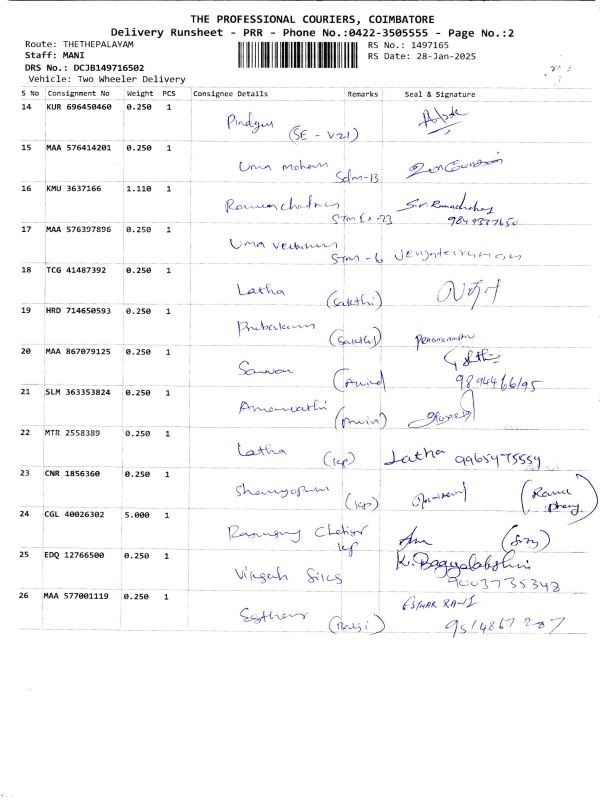 THE PROFESSIONAL COURIERS, COIMBATORE
Delivery Runsheet - PRR - Phone No.:0422-3505555 - Page No.:2
Route: THETHEPALAYAM
RS No.: 1497165
Staff: MANI
RS Date: 28-Jan-2025
DRS No.: DCJB149716502
Vehicle: Two Wheeler Delivery
S No Consignment No Weight PCS Consignee Details Remarks Seal & Signature
14 KUR 696450460 0.250 1
(SE - V21)
15 MAA 576414201 0.250 1
Uma Mohan
Sdm-13
16 KMU 3637166 1.110 1
Ramachadran
9849337650
17 MAA 576397896 0.250 1
Uma
STM - 6
18 TCG 41487392 0.250 1
Latha (Sakthi)
19 HRD 714650593 0.250 1
Prabakaran (Sakthi) PRABAKARAN
20 MAA 867079125 0.250 1
(Arvind)
9894466195
21 SLM 363353824 0.250 1
Amaravathi
22 MTR 2558389 0.250 1
Latha (KP) Latha 9965975559
23 CNR 1856360 0.250 1
(KP)
24 CGL 40026302 5.000 1
Chettiar
25 EDQ 12766500 0.250 1
K. Bagyalakshmi
Silks 9003735348
26 MAA 577001119 0.250 1
ESTHAR RANI
(Balji) 9514867207